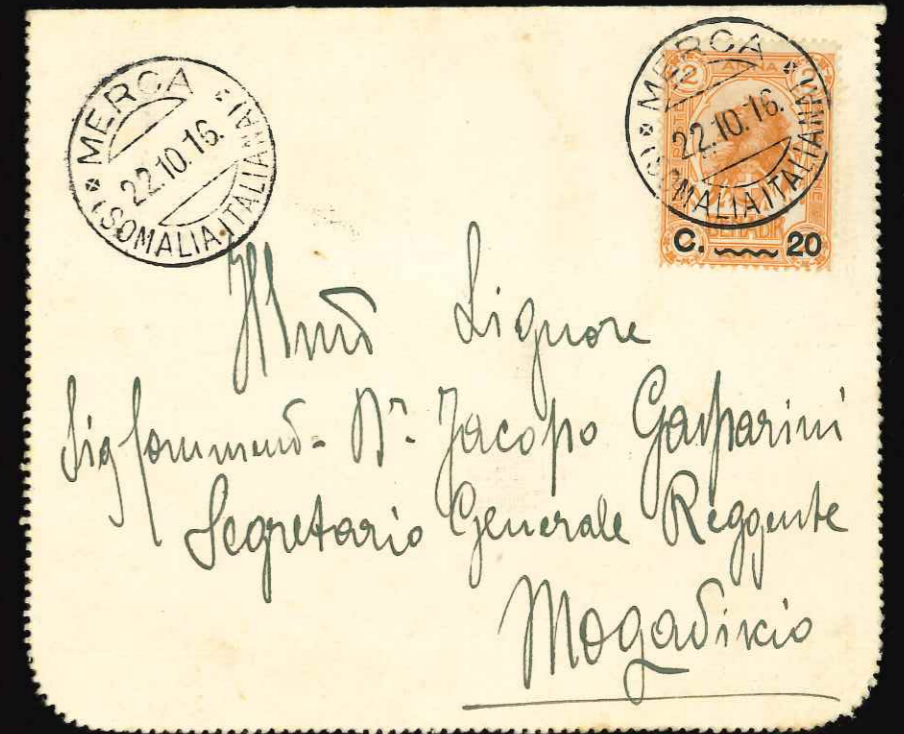 MERCA
22.10.16.
(SOMALIA ITALIANA)
MERCA
22.10.16.
(SOMALIA ITALIANA)
2 ANNA 2
BENADIR
C. 20
Illmo Signore
Sig Commend. Dr. Jacopo Gasparini
Segretario Generale Reggente
Mogadiscio